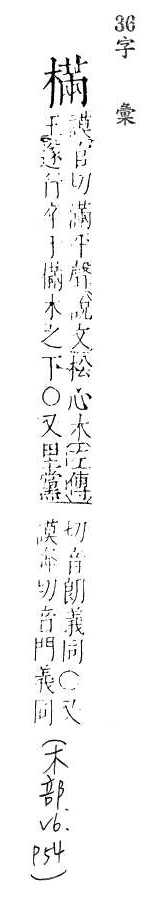 36 字彙
樠
謨官切滿平聲說文松心木左傳
王遂行卒于樠木之下○又里黨
切音朗義同○又
謨奔切音門義同
(木部 v6. p54)